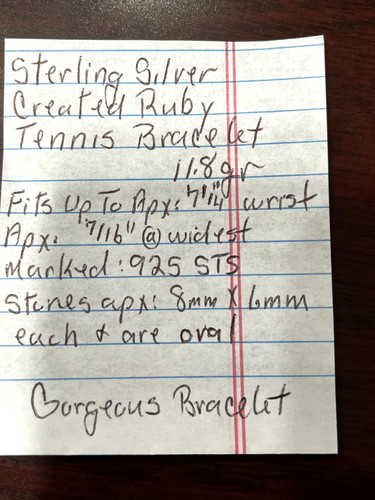 Sterling Silver
Created Ruby
Tennis Bracelet
11.8gr
Fits Up To Apx: 7 1/4" wrist
Apx: 7/16" @ widest
Marked: 925 STS
Stones apx: 8mm X 6mm
each & are oval
Gorgeous Bracelet